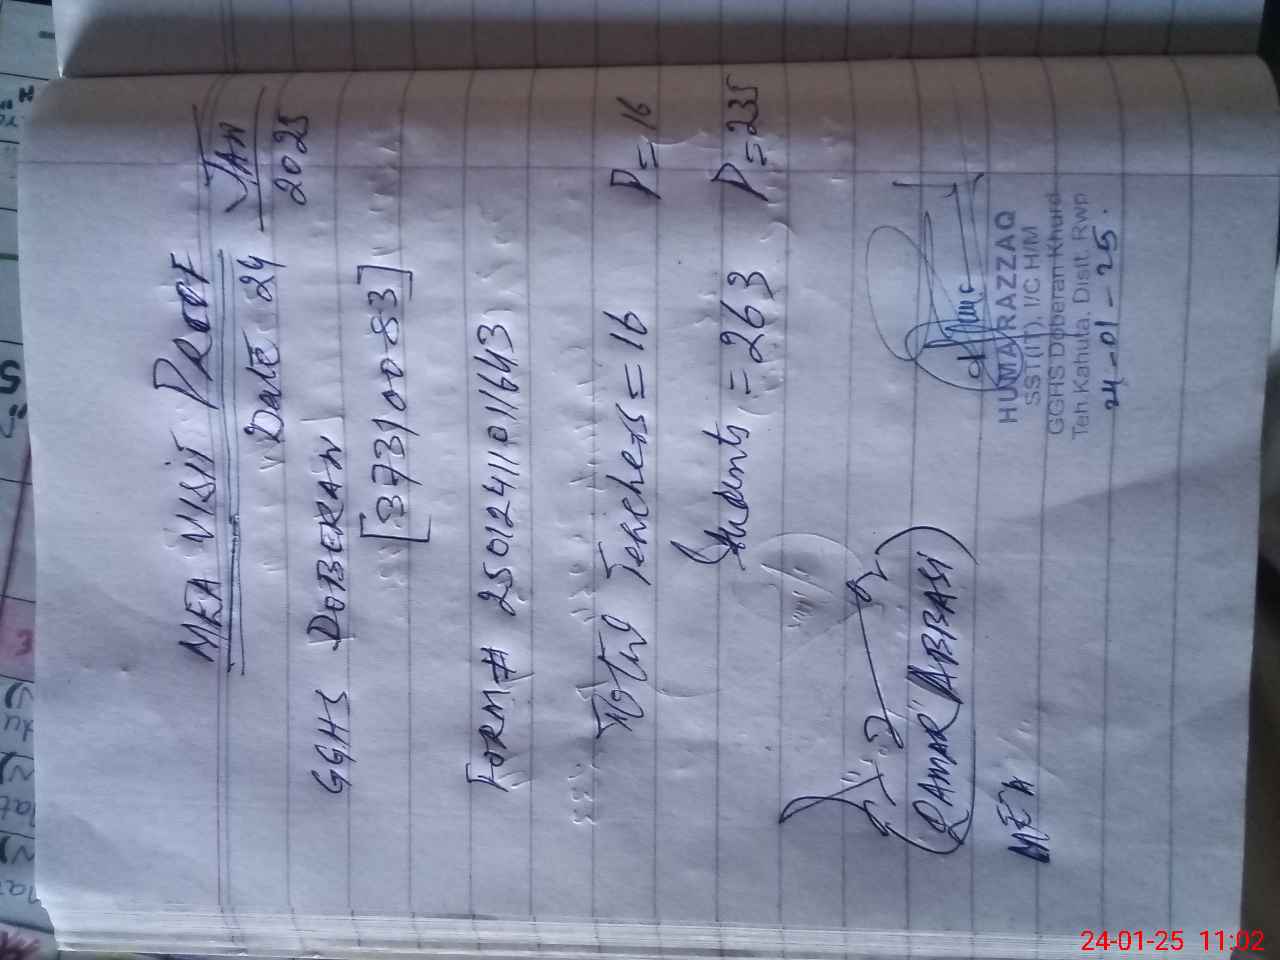 MEA VISIT PROOF
Date 24 JAN 2025
GGHS DOBERAN
[37310083]
FORM# 25012411011643
Total Teachers = 16 P = 16
Students = 263 P = 235
(QAMAR ABBASI)
MEA
HUMA RAZZAQ
SST(IT), I/C H/M
GGHS Doberan Khurd
Teh Kahuta, Disit. Rwp
24-01-25.
24-01-25 11:02